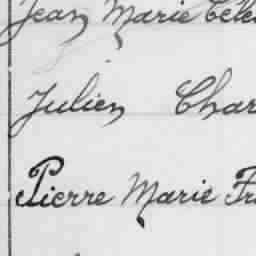 Jean Marie Cele
Julien Char
Pierre Marie Fr